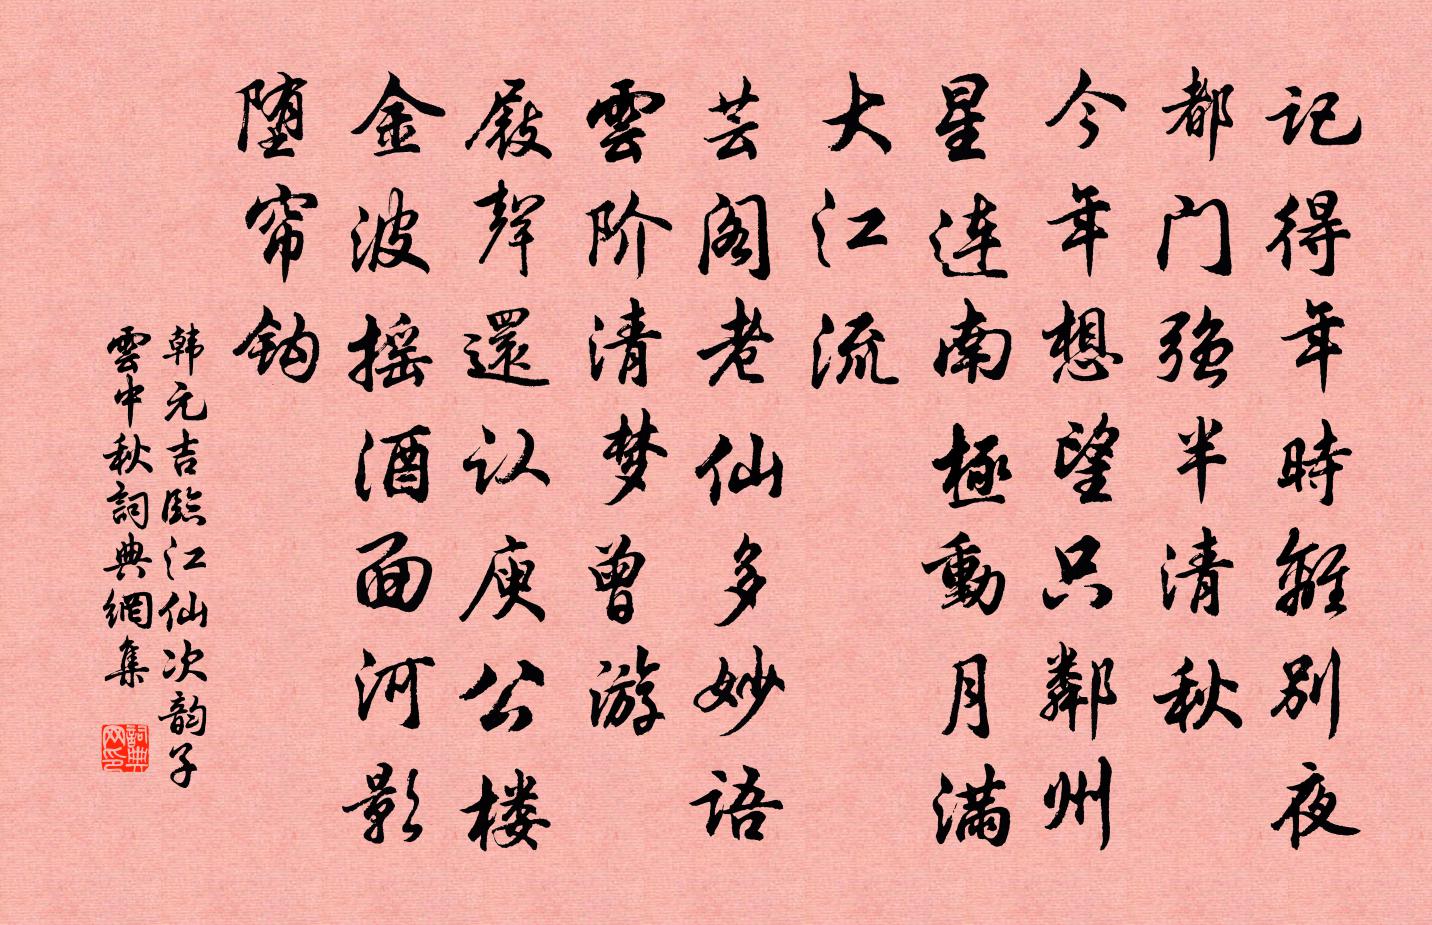 记得年時離别夜
都门强半清秋
今年想望只鄰州
星連南極動月满
大江流
芸阁老仙多妙语
雲阶清梦曾游
屐聲還认庾公楼
金波摇酒面河影
堕帘钩
韩元吉臨江仙次韵子
雲中秋詞典網集
詞典
网印